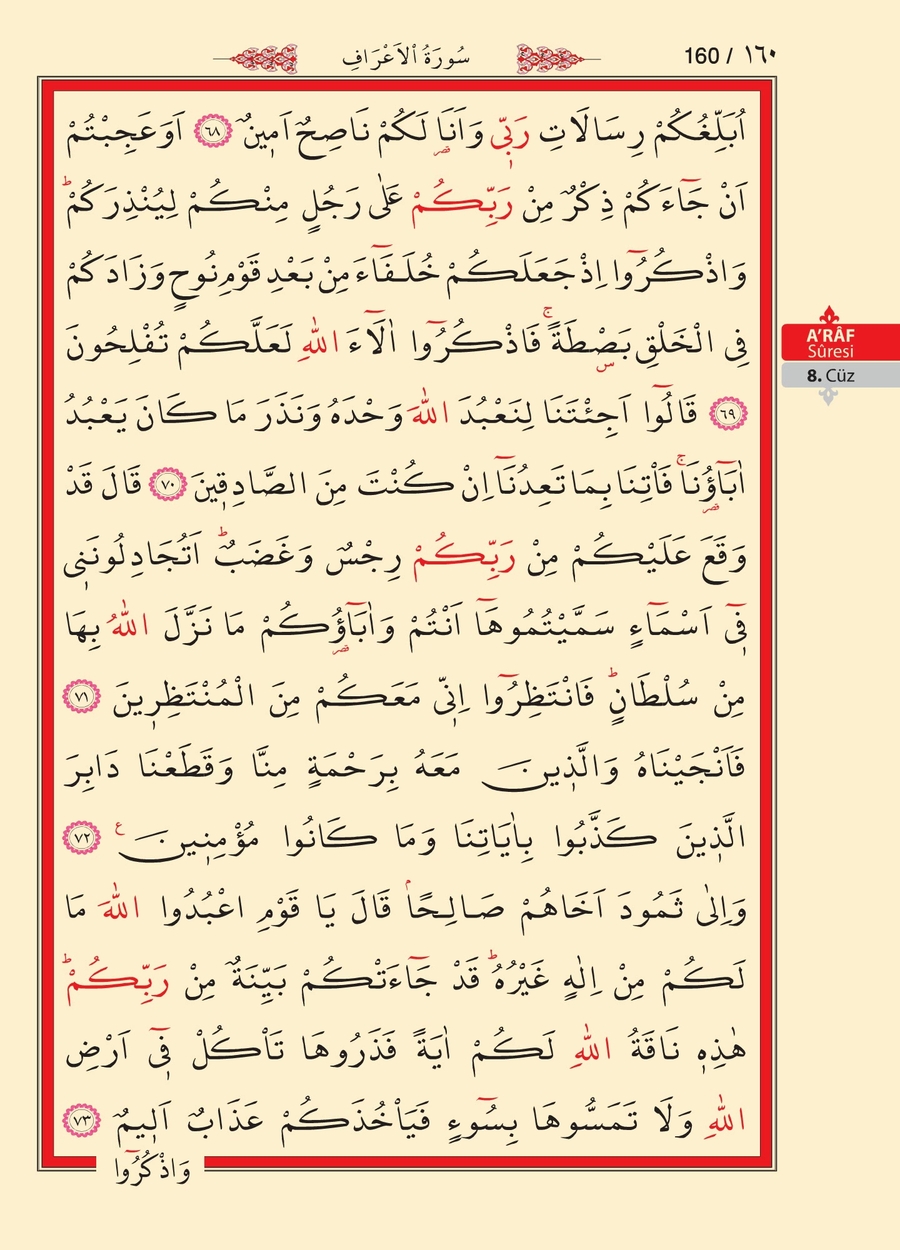 160 / ١٦٠
سُورَةُ الْاَعْرَافِ
اُبَلِّغُكُمْ رِسَالَاتِ رَبّ۪ي وَاَنَا۬ لَكُمْ نَاصِحٌ اَم۪ينٌ ﴿٦٨﴾ اَوَعَجِبْتُمْ
اَنْ جَٓاءَكُمْ ذِكْرٌ مِنْ رَبِّكُمْ عَلٰى رَجُلٍ مِنْكُمْ لِيُنْذِرَكُمْۜ
وَاذْكُرُٓوا اِذْ جَعَلَكُمْ خُلَـفَٓاءَ مِنْ بَعْدِ قَوْمِ نُوحٍ وَزَادَكُمْ
فِي الْخَلْقِ بَصْۣطَةًۚ فَاذْكُرُٓوا اٰلَٓاءَ اللّٰهِ لَعَلَّكُمْ تُفْلِحُونَ
﴿٦٩﴾ قَالُٓوا اَجِئْتَنَا لِنَعْبُدَ اللّٰهَ وَحْدَهُ وَنَذَرَ مَا كَانَ يَعْبُدُ
اٰبَٓاؤُ۬نَاۚ فَأْتِنَا بِمَا تَعِدُنَٓا اِنْ كُنْتَ مِنَ الصَّادِق۪ينَ ﴿٧٠﴾ قَالَ قَدْ
وَقَعَ عَلَيْكُمْ مِنْ رَبِّكُمْ رِجْسٌ وَغَضَبٌۜ اَتُجَادِلُونَن۪ي
ف۪ٓي اَسْمَٓاءٍ سَمَّيْتُمُوهَٓا اَنْتُمْ وَاٰبَٓاؤُ۬كُمْ مَا نَزَّلَ اللّٰهُ بِهَا
مِنْ سُلْطَانٍۜ فَانْتَظِرُٓوا اِنّ۪ي مَعَكُمْ مِنَ الْمُنْتَظِر۪ينَ ﴿٧١﴾
فَاَنْجَيْنَاهُ وَالَّذ۪ينَ مَعَهُ بِرَحْمَةٍ مِنَّا وَقَطَعْنَا دَابِرَ
الَّذ۪ينَ كَذَّبُوا بِاٰيَاتِنَا وَمَا كَانُوا مُؤْمِن۪ينَ ع ﴿٧٢﴾
وَاِلٰى ثَمُودَ اَخَاهُمْ صَالِحًاۢ قَالَ يَا قَوْمِ اعْبُدُوا اللّٰهَ مَا
لَكُمْ مِنْ اِلٰهٍ غَيْرُهُۜ قَدْ جَٓاءَتْكُمْ بَيِّنَةٌ مِنْ رَبِّكُمْۜ
هٰذِه۪ نَاقَةُ اللّٰهِ لَكُمْ اٰيَةً فَذَرُوهَا تَأْكُلْ ف۪ٓي اَرْضِ
اللّٰهِ وَلَا تَمَسُّوهَا بِسُٓوءٍ فَيَأْخُذَكُمْ عَذَابٌ اَل۪يمٌ ﴿٧٣﴾
وَاذْكُرُٓوا
A'RÂF
Sûresi
8. Cüz